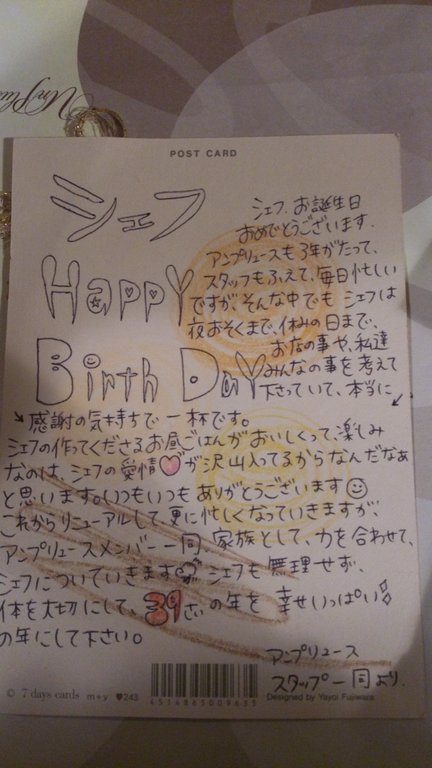 POST CARD
シェフ
HAPPY
Birth DaY
シェフ、お誕生日
おめでとうございます。
アンプリュースも3年がたって、
スタッフもふえて、毎日忙しい
ですが、そんな中でも シェフは
夜おそくまで、休みの日まで、
お店の事や、私達
みんなの事を考えて
下さっていて、本当に
感謝の気持ちで一杯です。
シェフの作ってくださるお昼ごはんがおいしくって、楽しみ
なのは、シェフの愛情が沢山入ってるからなんだなぁ
と思います。いつもいつも ありがとうございます
これからリニューアルして、更に忙しくなっていきますが、
アンプリュースメンバー一同、家族として、力を合わせて、
シェフについていきます。シェフも 無理せず、
体を大切にして、39さいの年を 幸せいっぱい
の年にして下さい。
アンプリュース
スタッフ一同より.
© 7 days cards m+y ♥243
4514865009635
Designed by Yayoi Fujiwara